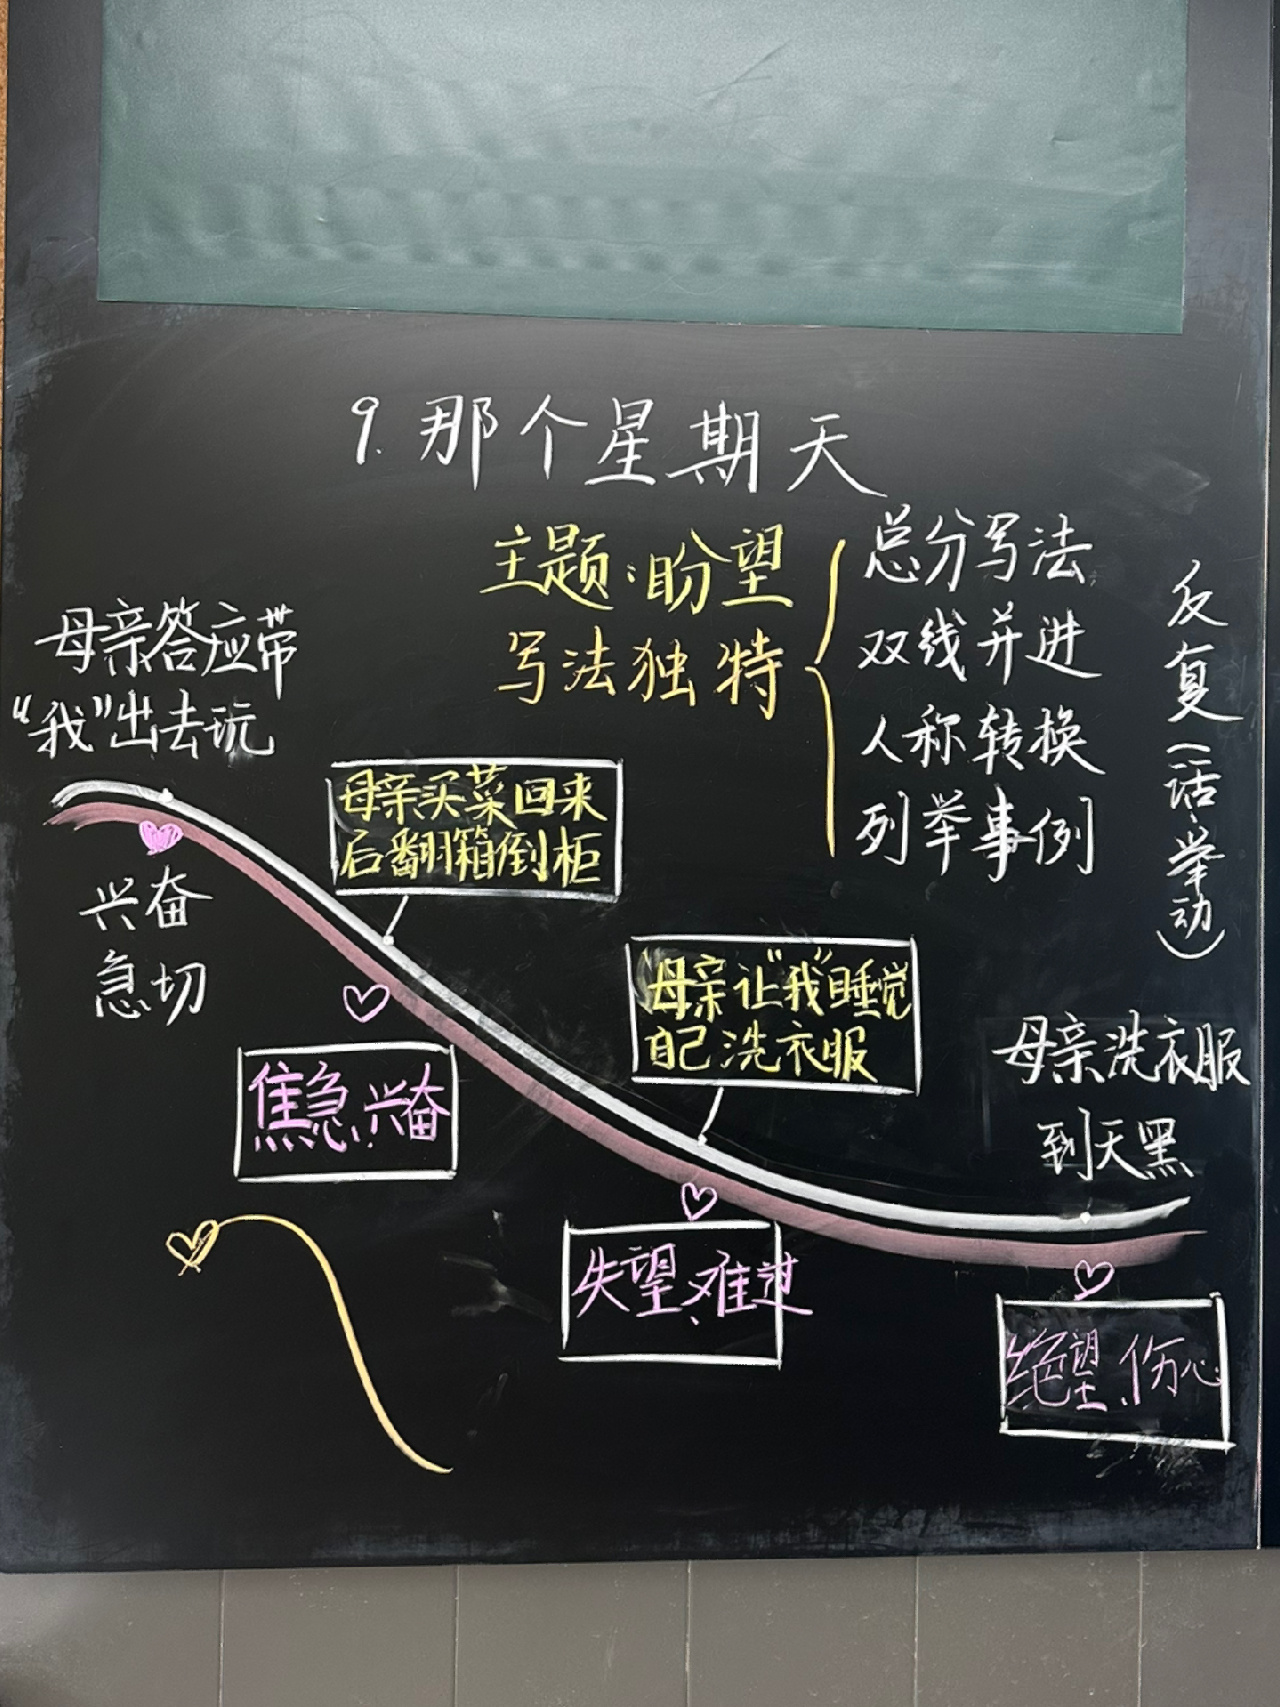 9. 那个星期天
主题：盼望
写法独特
总分写法
双线并进
人称转换
列举事例
反复（话、举动）
母亲答应带
“我”出去玩
兴奋
急切
母亲买菜回来
后翻箱倒柜
焦急、兴奋
母亲让“我”睡觉
自己洗衣服
失望、难过
母亲洗衣服
到天黑
绝望、伤心